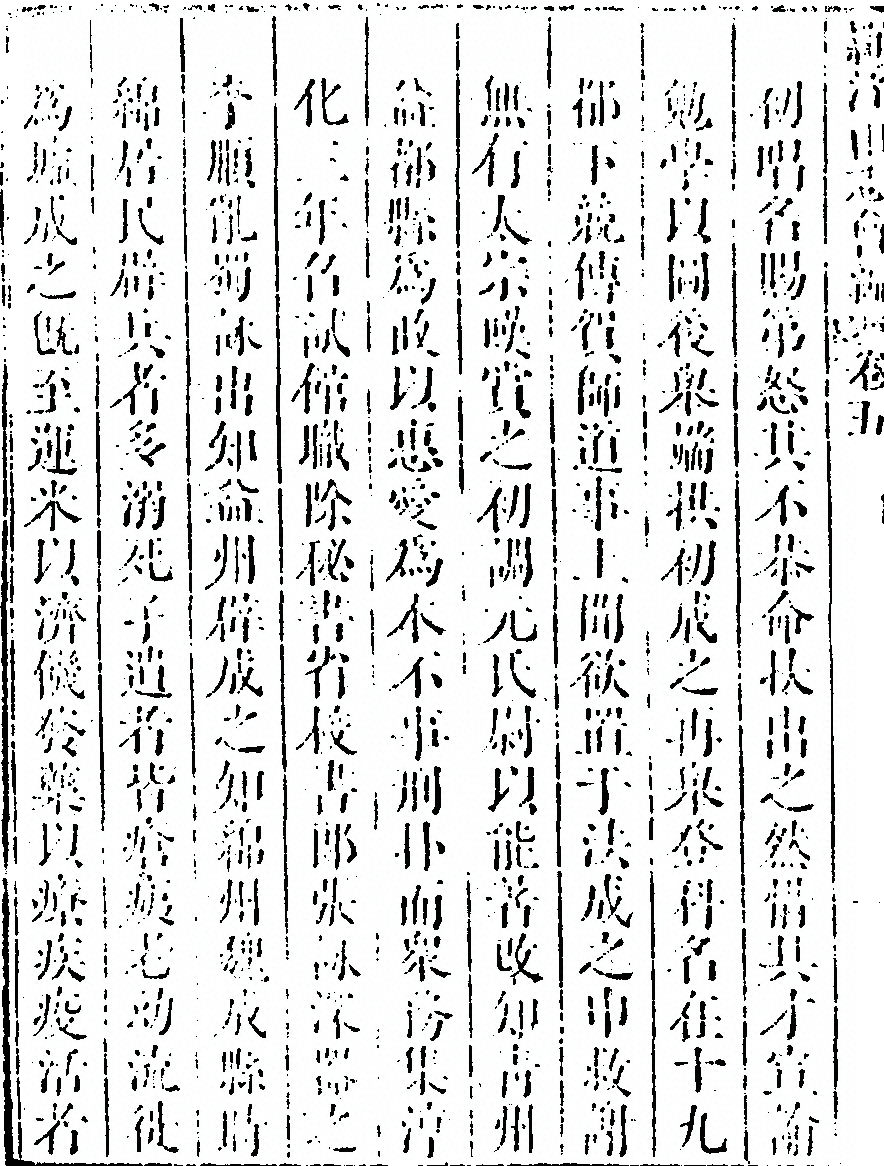 初唱名賜第怒其不恭命扶出之然惜其才宣諭
勉學以圖後舉端拱初成之再舉登科名在十九
都下競傳賀師道事上聞欲置于法成之申救謝
無行太宗嘆賞之初調元氏尉以能著改知青州
益都縣為政以惠愛為本不事刑扑而眾務集淳
化三年召試館職除秘書省校書郎張詠深器之
李順亂蜀詠出知益州辟成之知綿州魏成縣時
綿居民辟兵者多溺死孑遺者皆瘡痍老幼流徙
為墟成之既至運米以濟饑發藥以療疾疫活者